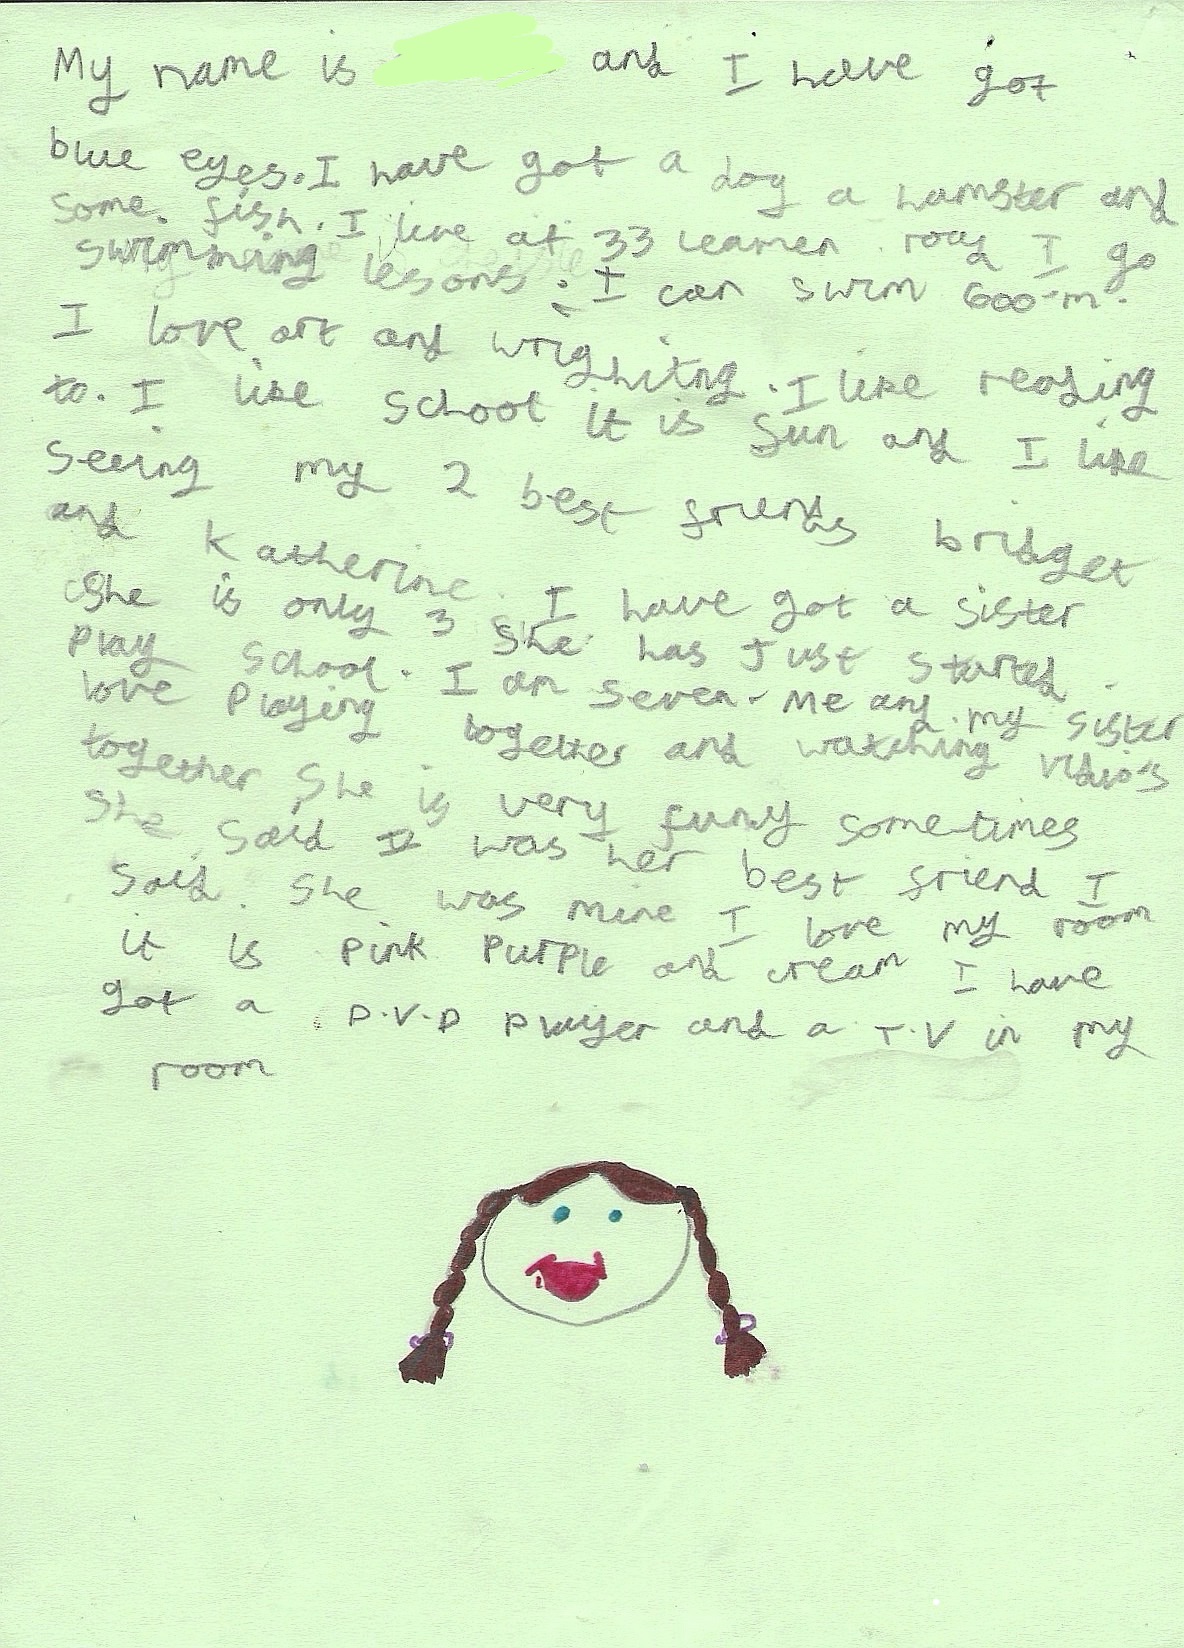 My name is and I have got
blue eyes. I have got a dog a hamster and
some fish. I live at 33 leamen road I go
swimming lessons. I can swim 600-m.
I love art and wrighitng. I like reading
to. I like school it is fun and I like
seeing my 2 best friends bridget
and Katherine. I have got a sister
She is only 3 she has Just started
Play school. I am seven. Me and my sister
love Playing together and watching vidio's
together She is very funny some times
She said I was her best friend I
said. She was mine I love my room
it is Pink Purple and cream I have
got a D.V.D Player and a T.V in my
room